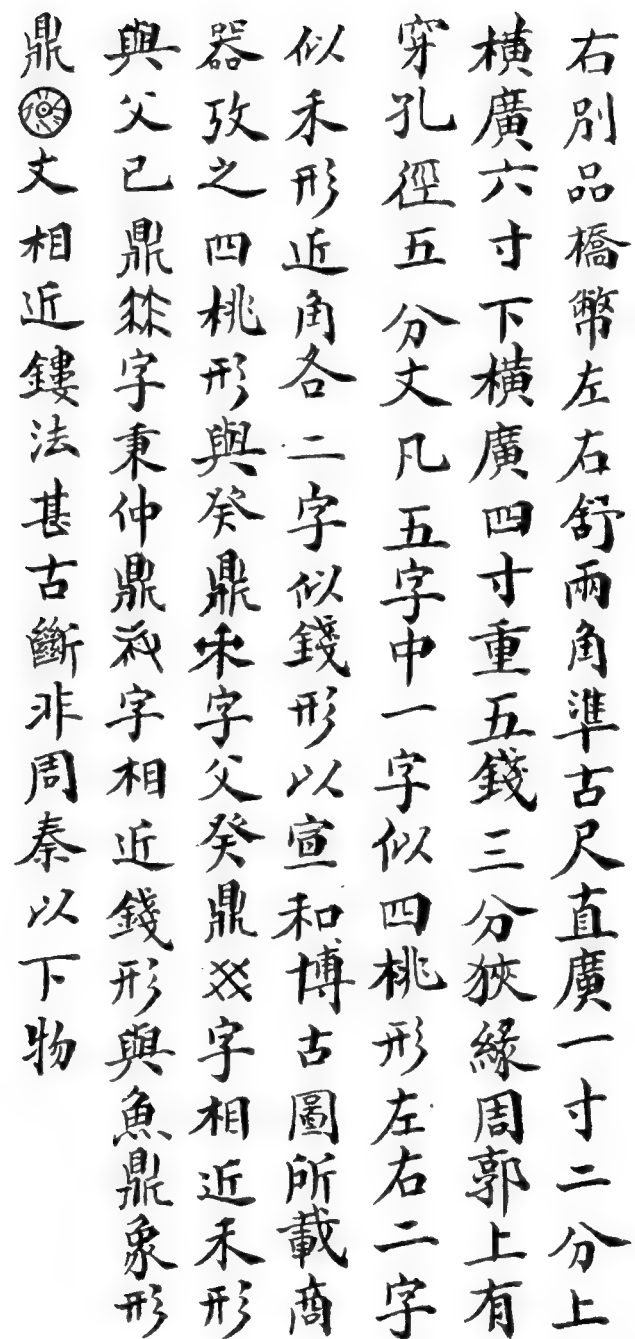 右別品橋幣左右舒兩角準古尺直廣一寸二分上
橫廣六寸下橫廣四寸重五錢三分狹緣周郭上有
穿孔徑五分文凡五字中一字似四桃形左右二字
似禾形近角各二字似錢形以宣和博古圖所載商
器攷之四桃形與癸鼎字父癸鼎字相近禾形
與父己鼎字秉仲鼎字相近錢形與魚鼎象形
鼎文相近鏤法甚古斷非周秦以下物